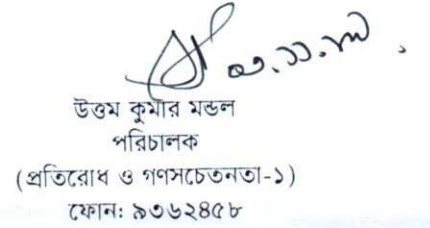 উত্তম কুমার মন্ডল
পরিচালক
(প্রতিরোধ ও গণসচেতনতা-১)
ফোন: ৯৩৬২৪৫৮